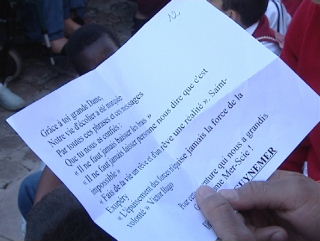 12
Grâce à toi grande Dame,
Notre vie d'écolier a été
Par toutes ces phrases et ces messages
Que tu nous as confiés :
« Il ne faut jamais baisser les bras »
« Il ne faut jamais laisser personne nous dire que c'est
impossible »
« Fais de ta vie un rêve et d'un rêve une réalité », Saint-
Exupéry
« L'épuisement des forces n'épuise jamais la force de la
volonté » Victor Hugo
Pour cette aventure qui nous a grandis
Mer-Scie !
GUYNEMER